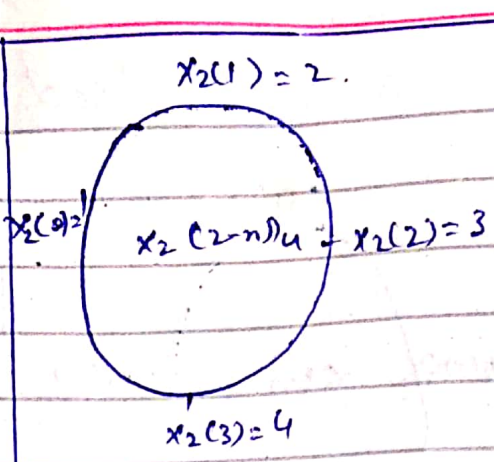 x2(1) = 2.
x2(0)=1
x2 (2-n))4
x2(2)= 3
x2(3)= 4